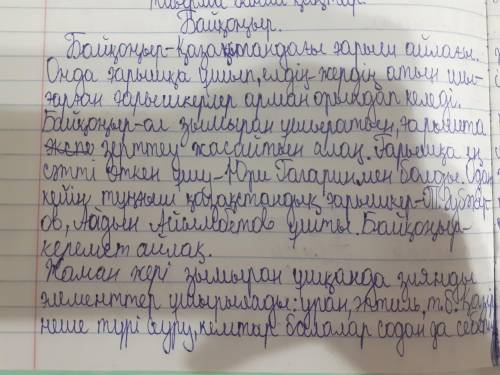 Байқоңыр.
Байқоңыр-Қазақстандағы ғарыш айлағы.
Онда ғарышқа ұшып, елдің-жердің атын шы-
ғарған ғарышкерлер арман орындап келеді.
Байқоңыр-ол зымыран ұшыратын, ғарышта
зерттеу жасайтын алаң. Ғарышқа ең
сәтті өткен ұшу-Юри Гагаринмен болды. Одан
кейін тұңғыш қазақстандық ғарышкер-Т.Әубәкір-
ов, Айдын Айымбетов ұшты. Байқоңыр-
керемет айлақ.
Жаман жері зымыран ұшқанда зиянды
элементтер ұшырылады: уран, т.б. Қазір
неше түрі ауру, кемтар балалар содан да себеп